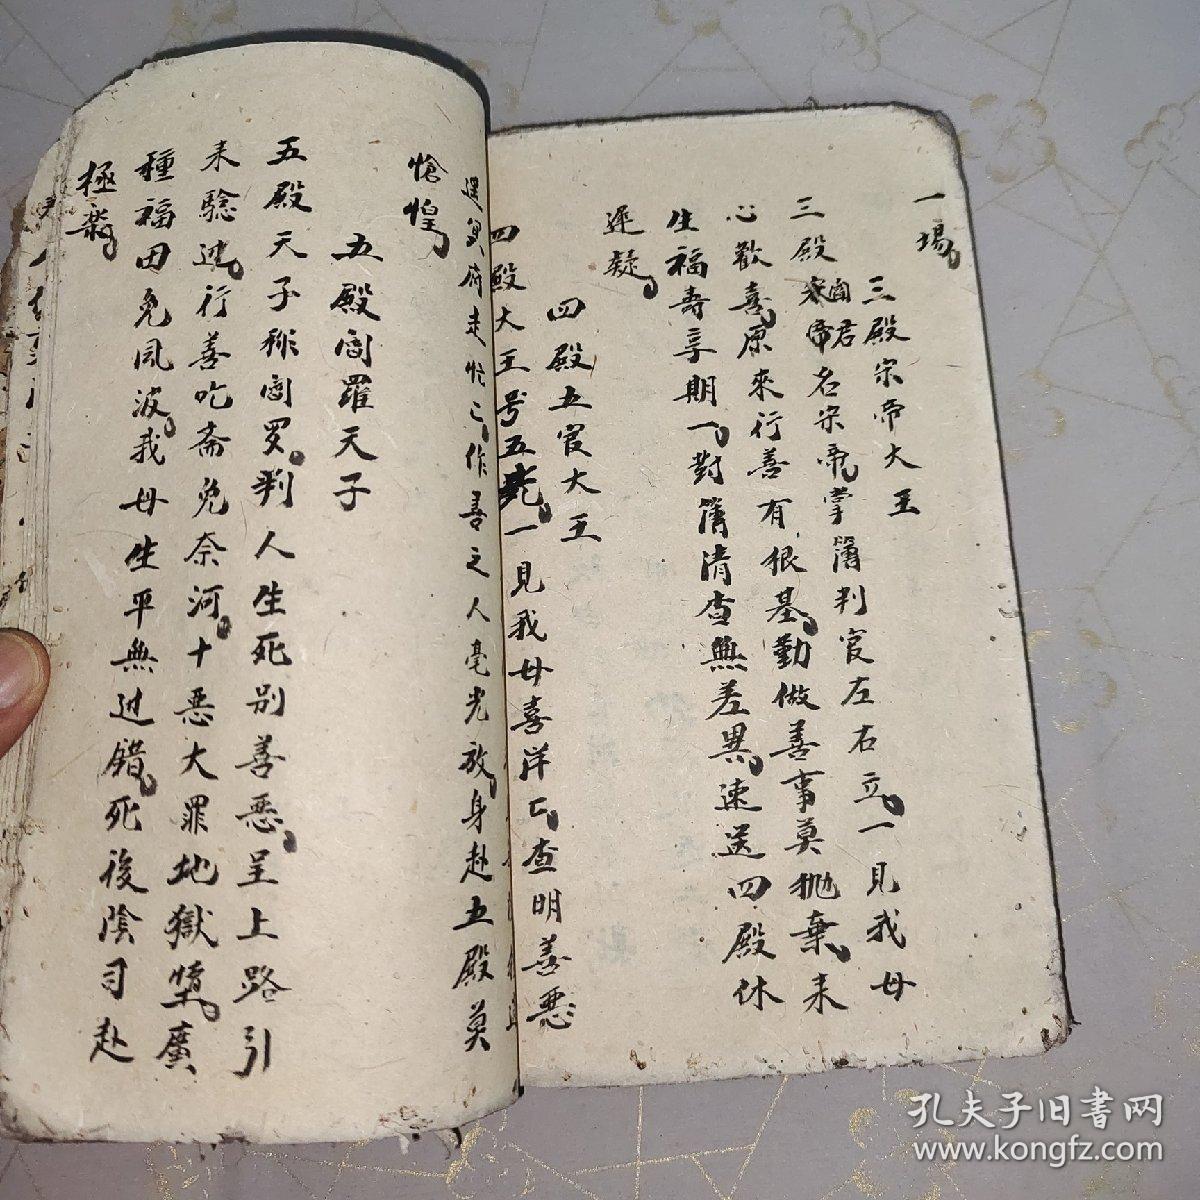 一場
三殿宋帝大王
三殿冥帝名宋帝掌簿判官左右立一見我母
閻君
心歡喜原來行善有根基勤做善事莫拋棄來
生福壽享期一對簿清查無差異速送四殿休
遲疑
四殿五官大王
四殿大王号五 一見我母喜洋匕查明善悪
逞冥府走忙匕作善之人毫光放身赴五殿莫
愴惶
五殿閻羅天子
五殿天子称閻罗判人生死别善恶呈上路引
来騐过行善吃斋免奈河十恶大罪地獄墮廣
種福田免风波我母生平無过錯死後陰司赴
極楽
孔夫子旧書网
www.kongfz.com